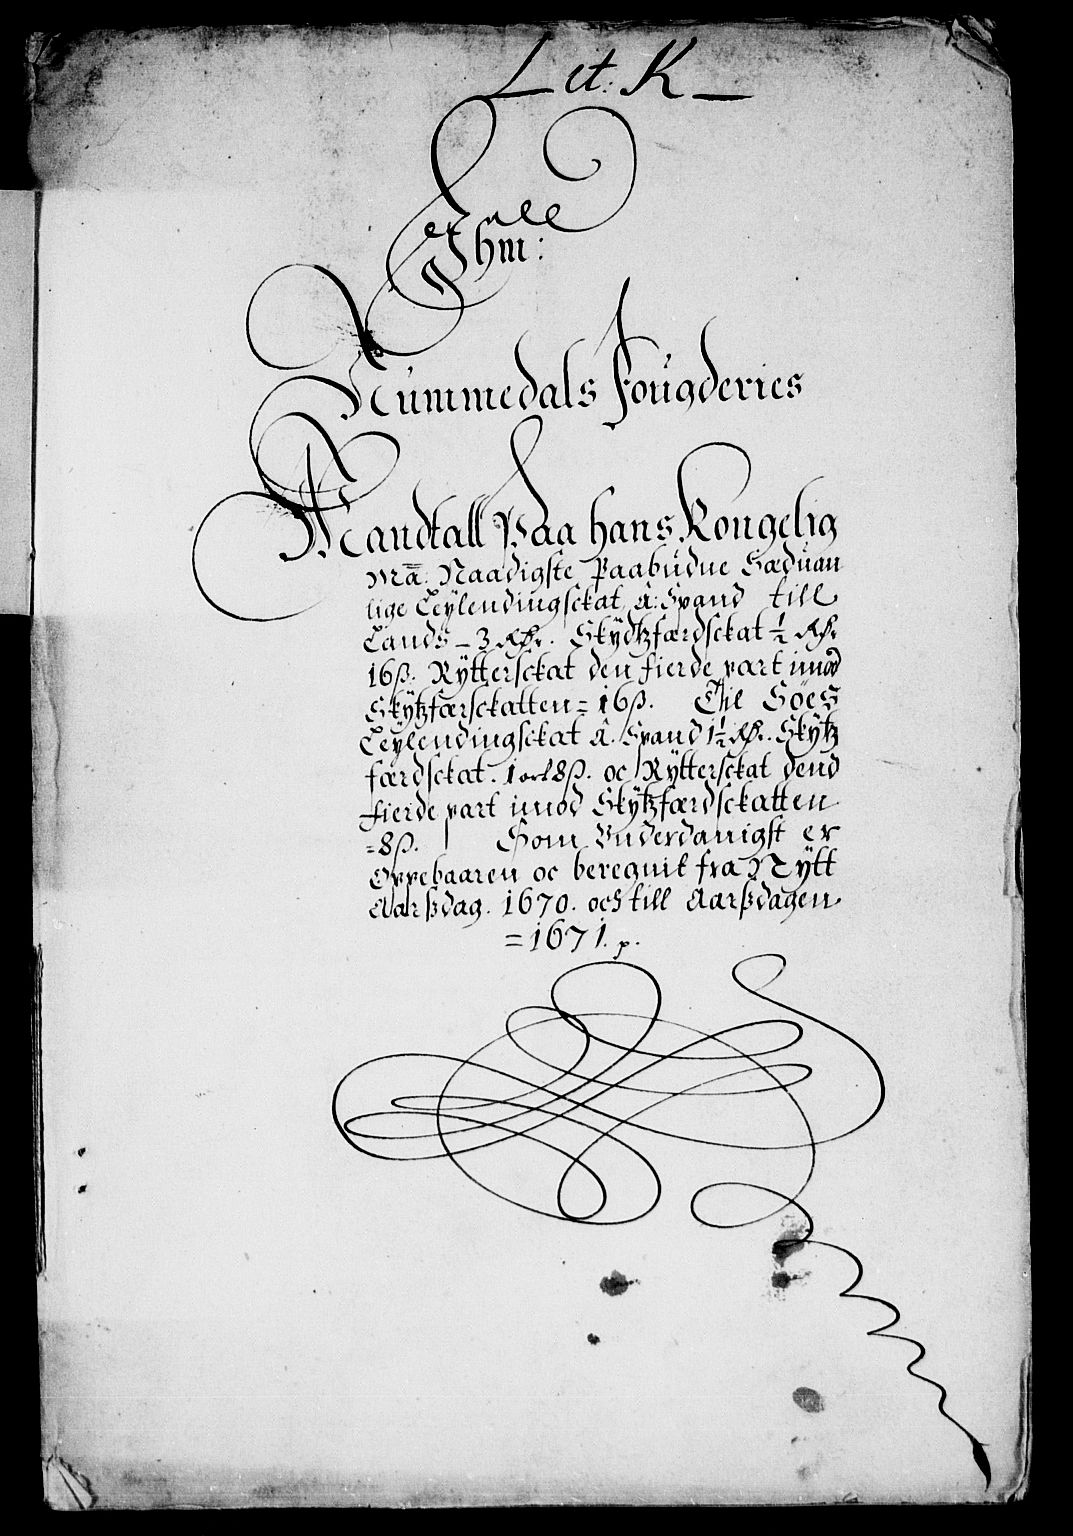 Lit: K
Jhm:
Nummedals Fougderies
Mandtall Paa hans Kongelig
Ma: Naadigste Paabudne Sæduan
lige Leylendingsckat, â: Spand till
Lands - 3 Rdr. Skydtzfærdsckat ½ Rdr
16ß. Ryttersckat den fierde part imod
Skytzfærsckatten = 16ß. Til Söes
Leylendingsckat â. Spand 1½ Rdr. Skytz
færdsckat. 1 ort 8ß. oc Ryttersckat dend
fierde part imod Skytzfærdsckatten
=8ß. Som Vnderdanigst er
Oppebaaren oc beregnit fra Nytt
Aarßdag. 1670. och till Aarßdagen
=1671. p.